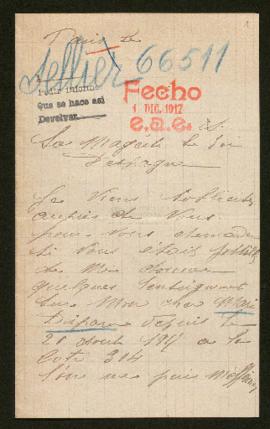 Paris le
Sellier 66511
Pedir informe
Que se hace así
Devolver
Fecho
1 DIC. 1917
e.a.e.
Sa Majesté le Roi
D'Espagne
Je viens solliciter
auprès de Vous
pour vous demander
si vous étais possible
de me donner
quelques renseignements
sur mon cher Mari
Disparu depuis le
20 1917 a la
Cote 304